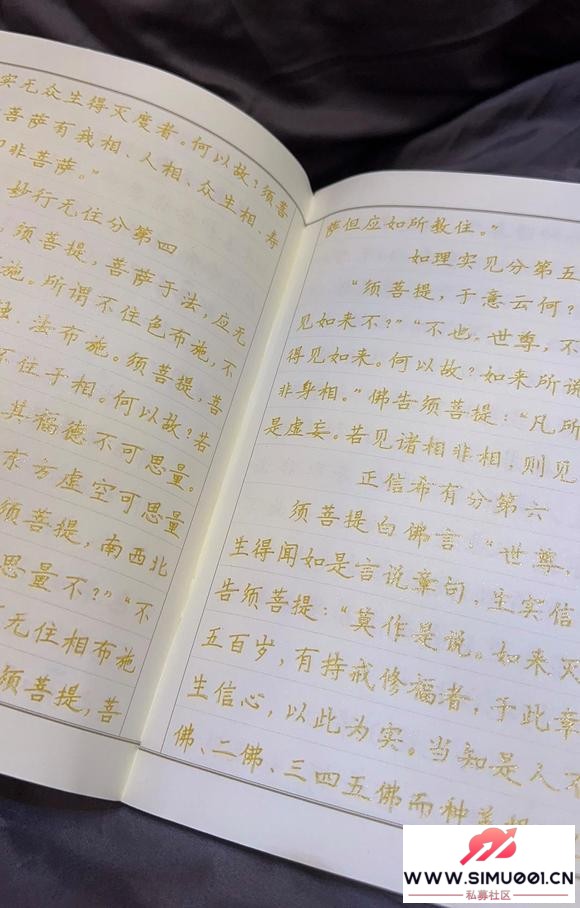 实无众生得灭度者。何以故?须菩
菩萨有我相、人相、众生相、寿
非菩萨。”
妙行无住分第四
须菩提,菩萨于法,应无
施。所谓不住色布施,不
法布施。须菩提,菩
不住于相。何以故?若
其福德不可思量。
东方虚空可思量
须菩提,南西北
思量不?”“不
无住相布施
须菩提,菩
萨但应如所教住。”
如理实见分第五
“须菩提,于意云何?
见如来不?”“不也,世尊,不
得见如来。何以故?如来所说
非身相。”佛告须菩提:“凡所
是虚妄。若见诸相非相,则见
正信希有分第六
须菩提白佛言:“世尊,
生得闻如是言说章句,生实信
告须菩提:“莫作是说。如来灭
五百岁,有持戒修福者,于此章
生信心,以此为实。当知是人不
佛、二佛、三四五佛而种善根
WWW.SIMU001.CN
私募社区